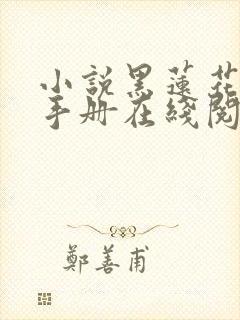 小說黑蓮花
手册在綫閱
鄭善甫